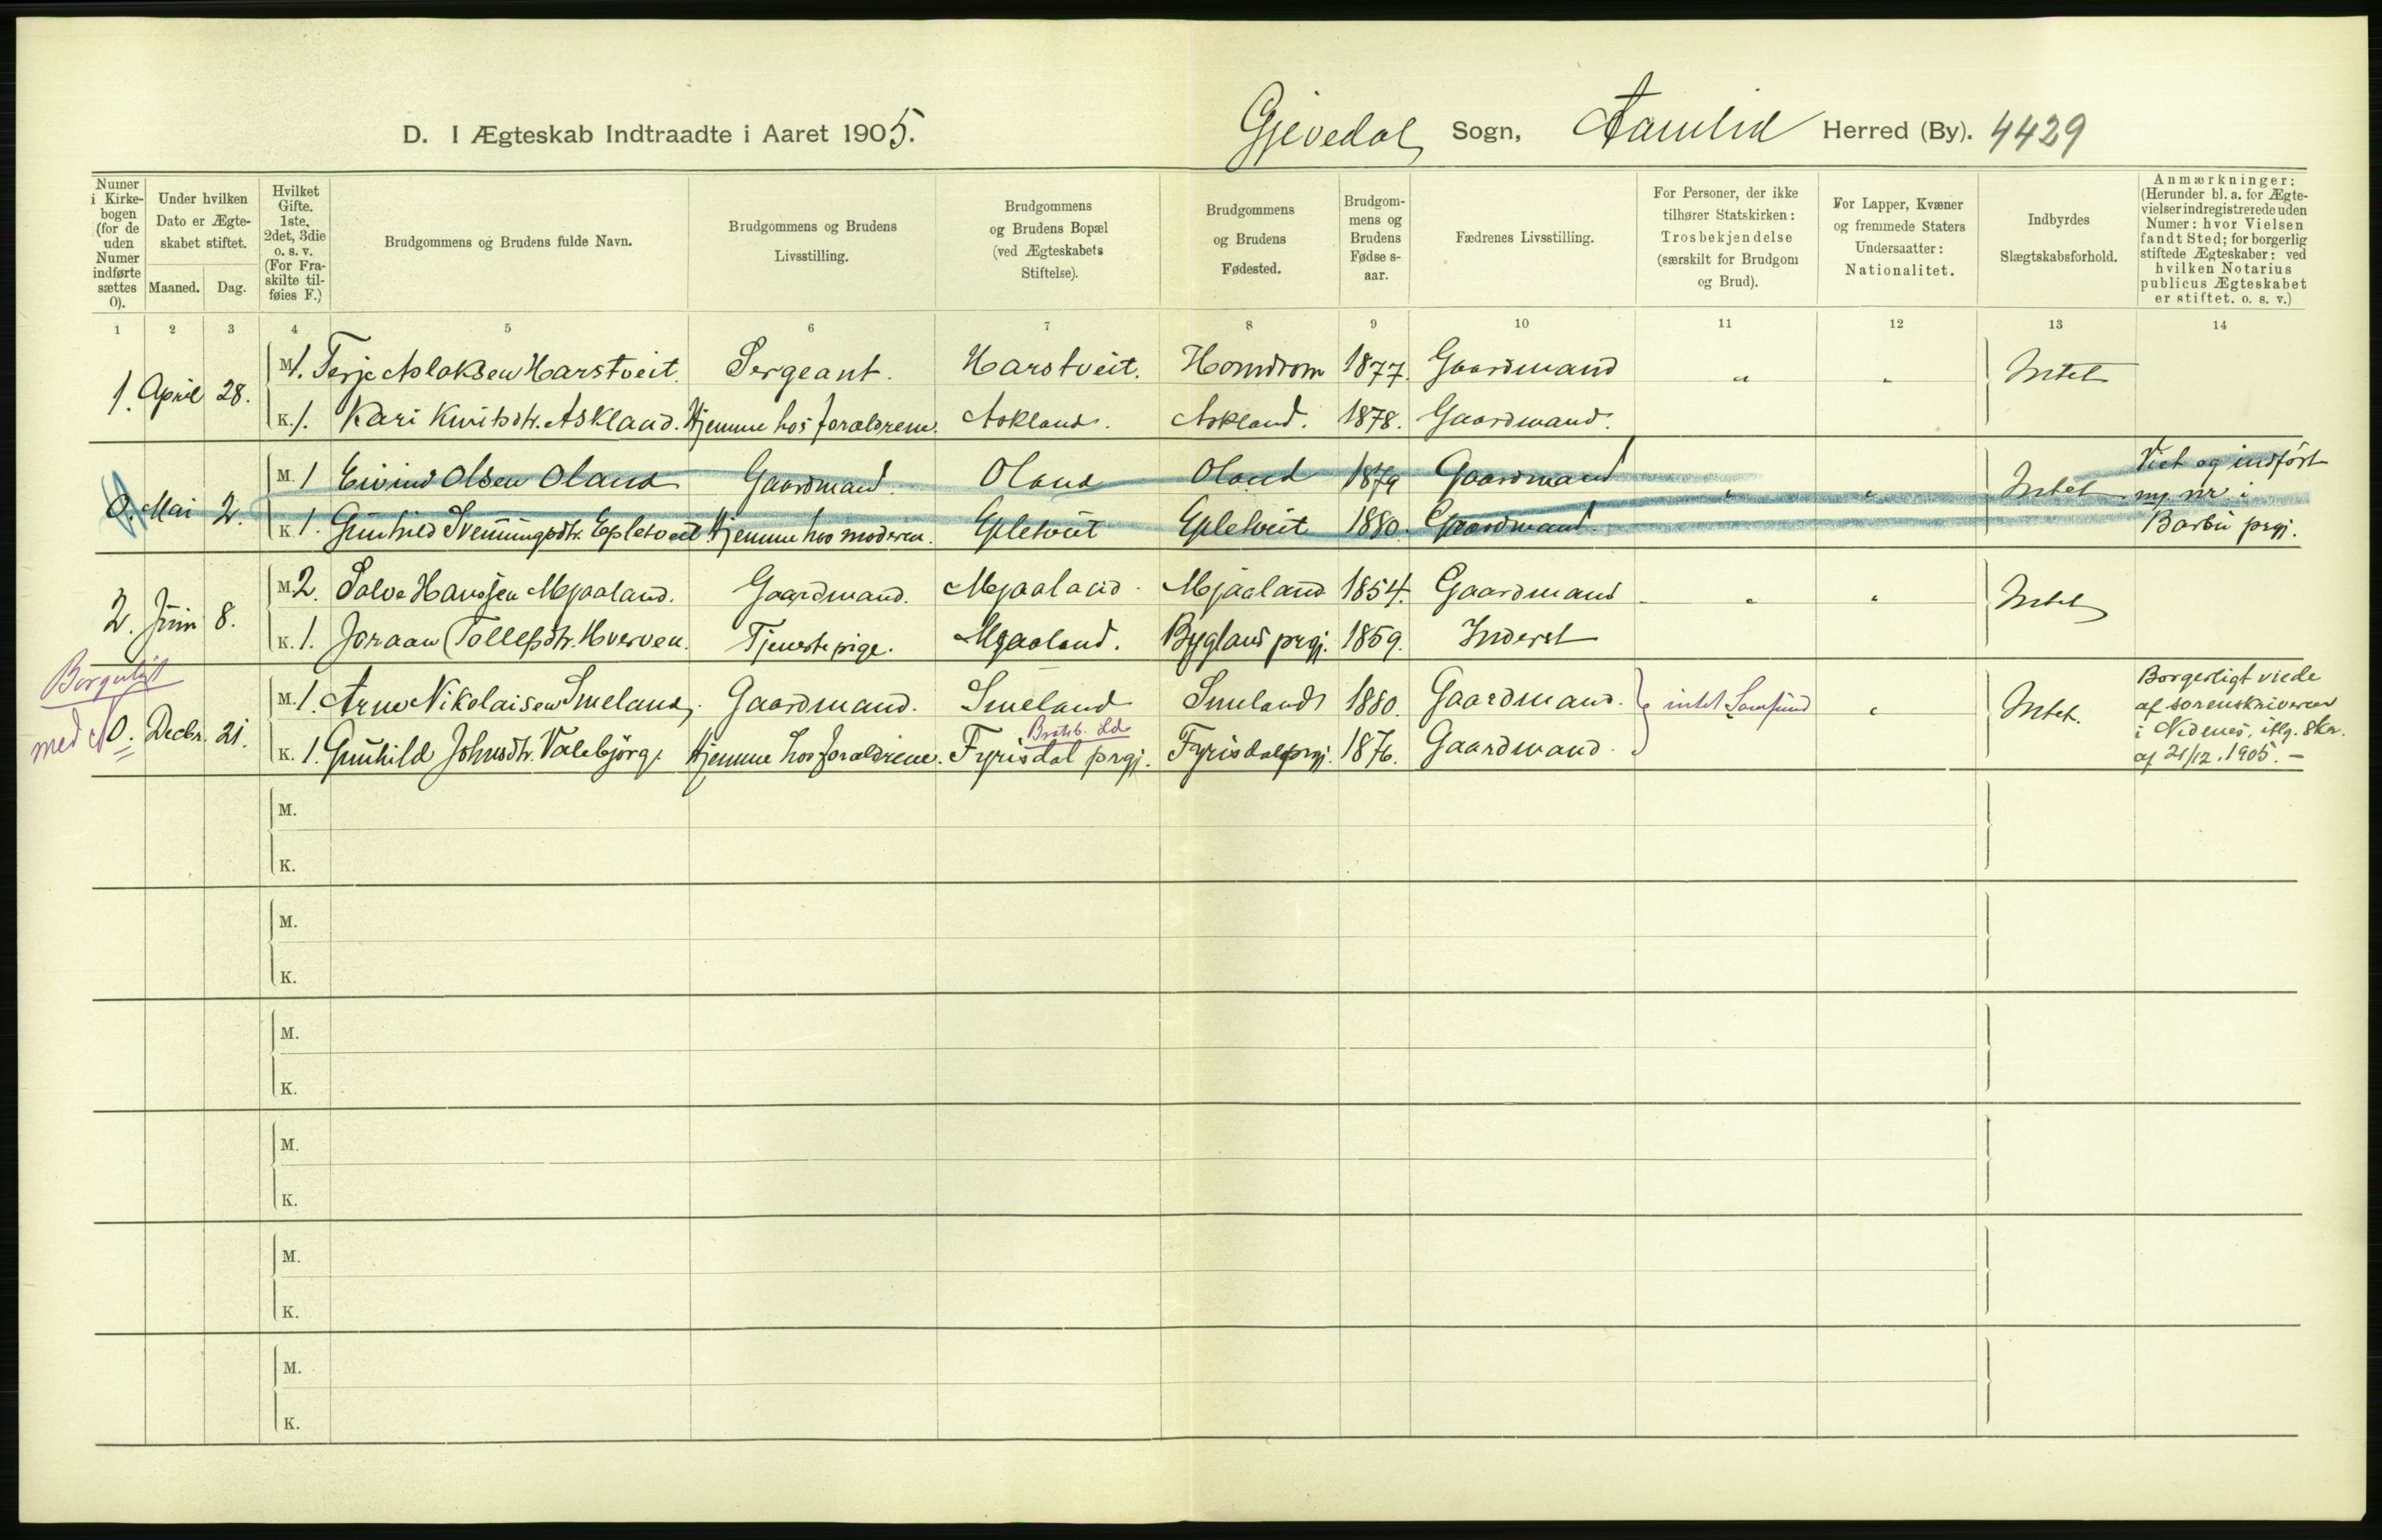 D. I Ægteskab Indtraadte i Aaret 1905. Gjevedal Sogn, Aamlid Herred (By). 4429
Numer i Kirkebogen (for de uden Numer indførte sættes 0).
Under hvilken Dato er Ægteskabet stiftet.
Maaned. Dag.
Hvilket Gifte. 1ste, 2det, 3die o. s. v. (For Fraskilte tilføies F.)
Brudgommens og Brudens fulde Navn.
Brudgommens og Brudens Livsstilling.
Brudgommens og Brudens Bopæl (ved Ægteskabets Stiftelse).
Brudgommens og Brudens Fødested.
Brudgommens og Brudens Fødselsaar.
Fædrenes Livsstilling.
For Personer, der ikke tilhører Statskirken: Trosbekjendelse (særskilt for Brudgom og Brud).
For Lapper, Kvæner og fremmede Staters Undersaatter: Nationalitet.
Indbyrdes Slægtskabsforhold.
Anmærkninger: (Herunder bl. a. for Ægtevielser indregistrerede uden Numer: hvor Vielsen fandt Sted; for borgerlig stiftede Ægteskaber: ved hvilken Notarius publicus Ægteskabet er stiftet. o. s. v.)
1 2 3 4 5 6 7 8 9 10 11 12 13 14
1. April 28. M. 1. Terje Aslaksen Harstveit. Sergeant. Harstveit. Homdrom 1877. Gaardmand " " Intet
K. 1. Kari Knutsdtr. Askland. Hjemme hos forældrene. Askland. Askland. 1878. Gaardmand.
0. Mai 2. M. 1 Eivind Olsen Oland Gaardmand. Oland Oland 1879 Gaardmand " " Intet Viet og indført
K. 1. Gunhild Svenningsdtr. Epletveit Hjemme hos moderen. Epletveit Epletveit 1880. Gaardmand. m. nr. i
Barbu prgj.
2. Juni 8. M. 2. Salve Hansen Mjaaland. Gaardmand. Mjaaland. Mjaaland 1854. Gaardmand " " Intet
K. 1. Joraan Tollefsdtr. Hverven. Tjenestepige. Mjaaland. Bygland prgj. 1859. Inderst
Borgerligt
med No. Decbr. 21. M. 1. Arne Nikolaisen Smeland. Gaardmand. Smeland Smeland 1880. Gaardmand. intet Samfund " Intet. Borgerligt viede
af sorenskriveren
Bratsb. Ld.
K. 1. Gunhild Johnsdtr. Valebjørg. Hjemme hos forældrene. Fyrisdal prgj. Fyrisdal prgj. 1876. Gaardmand. i Nedenes, iflg. skr.
af 21/12. 1905. –
M.
K.
M.
K.
M.
K.
M.
K.
M.
K.
M.
K.